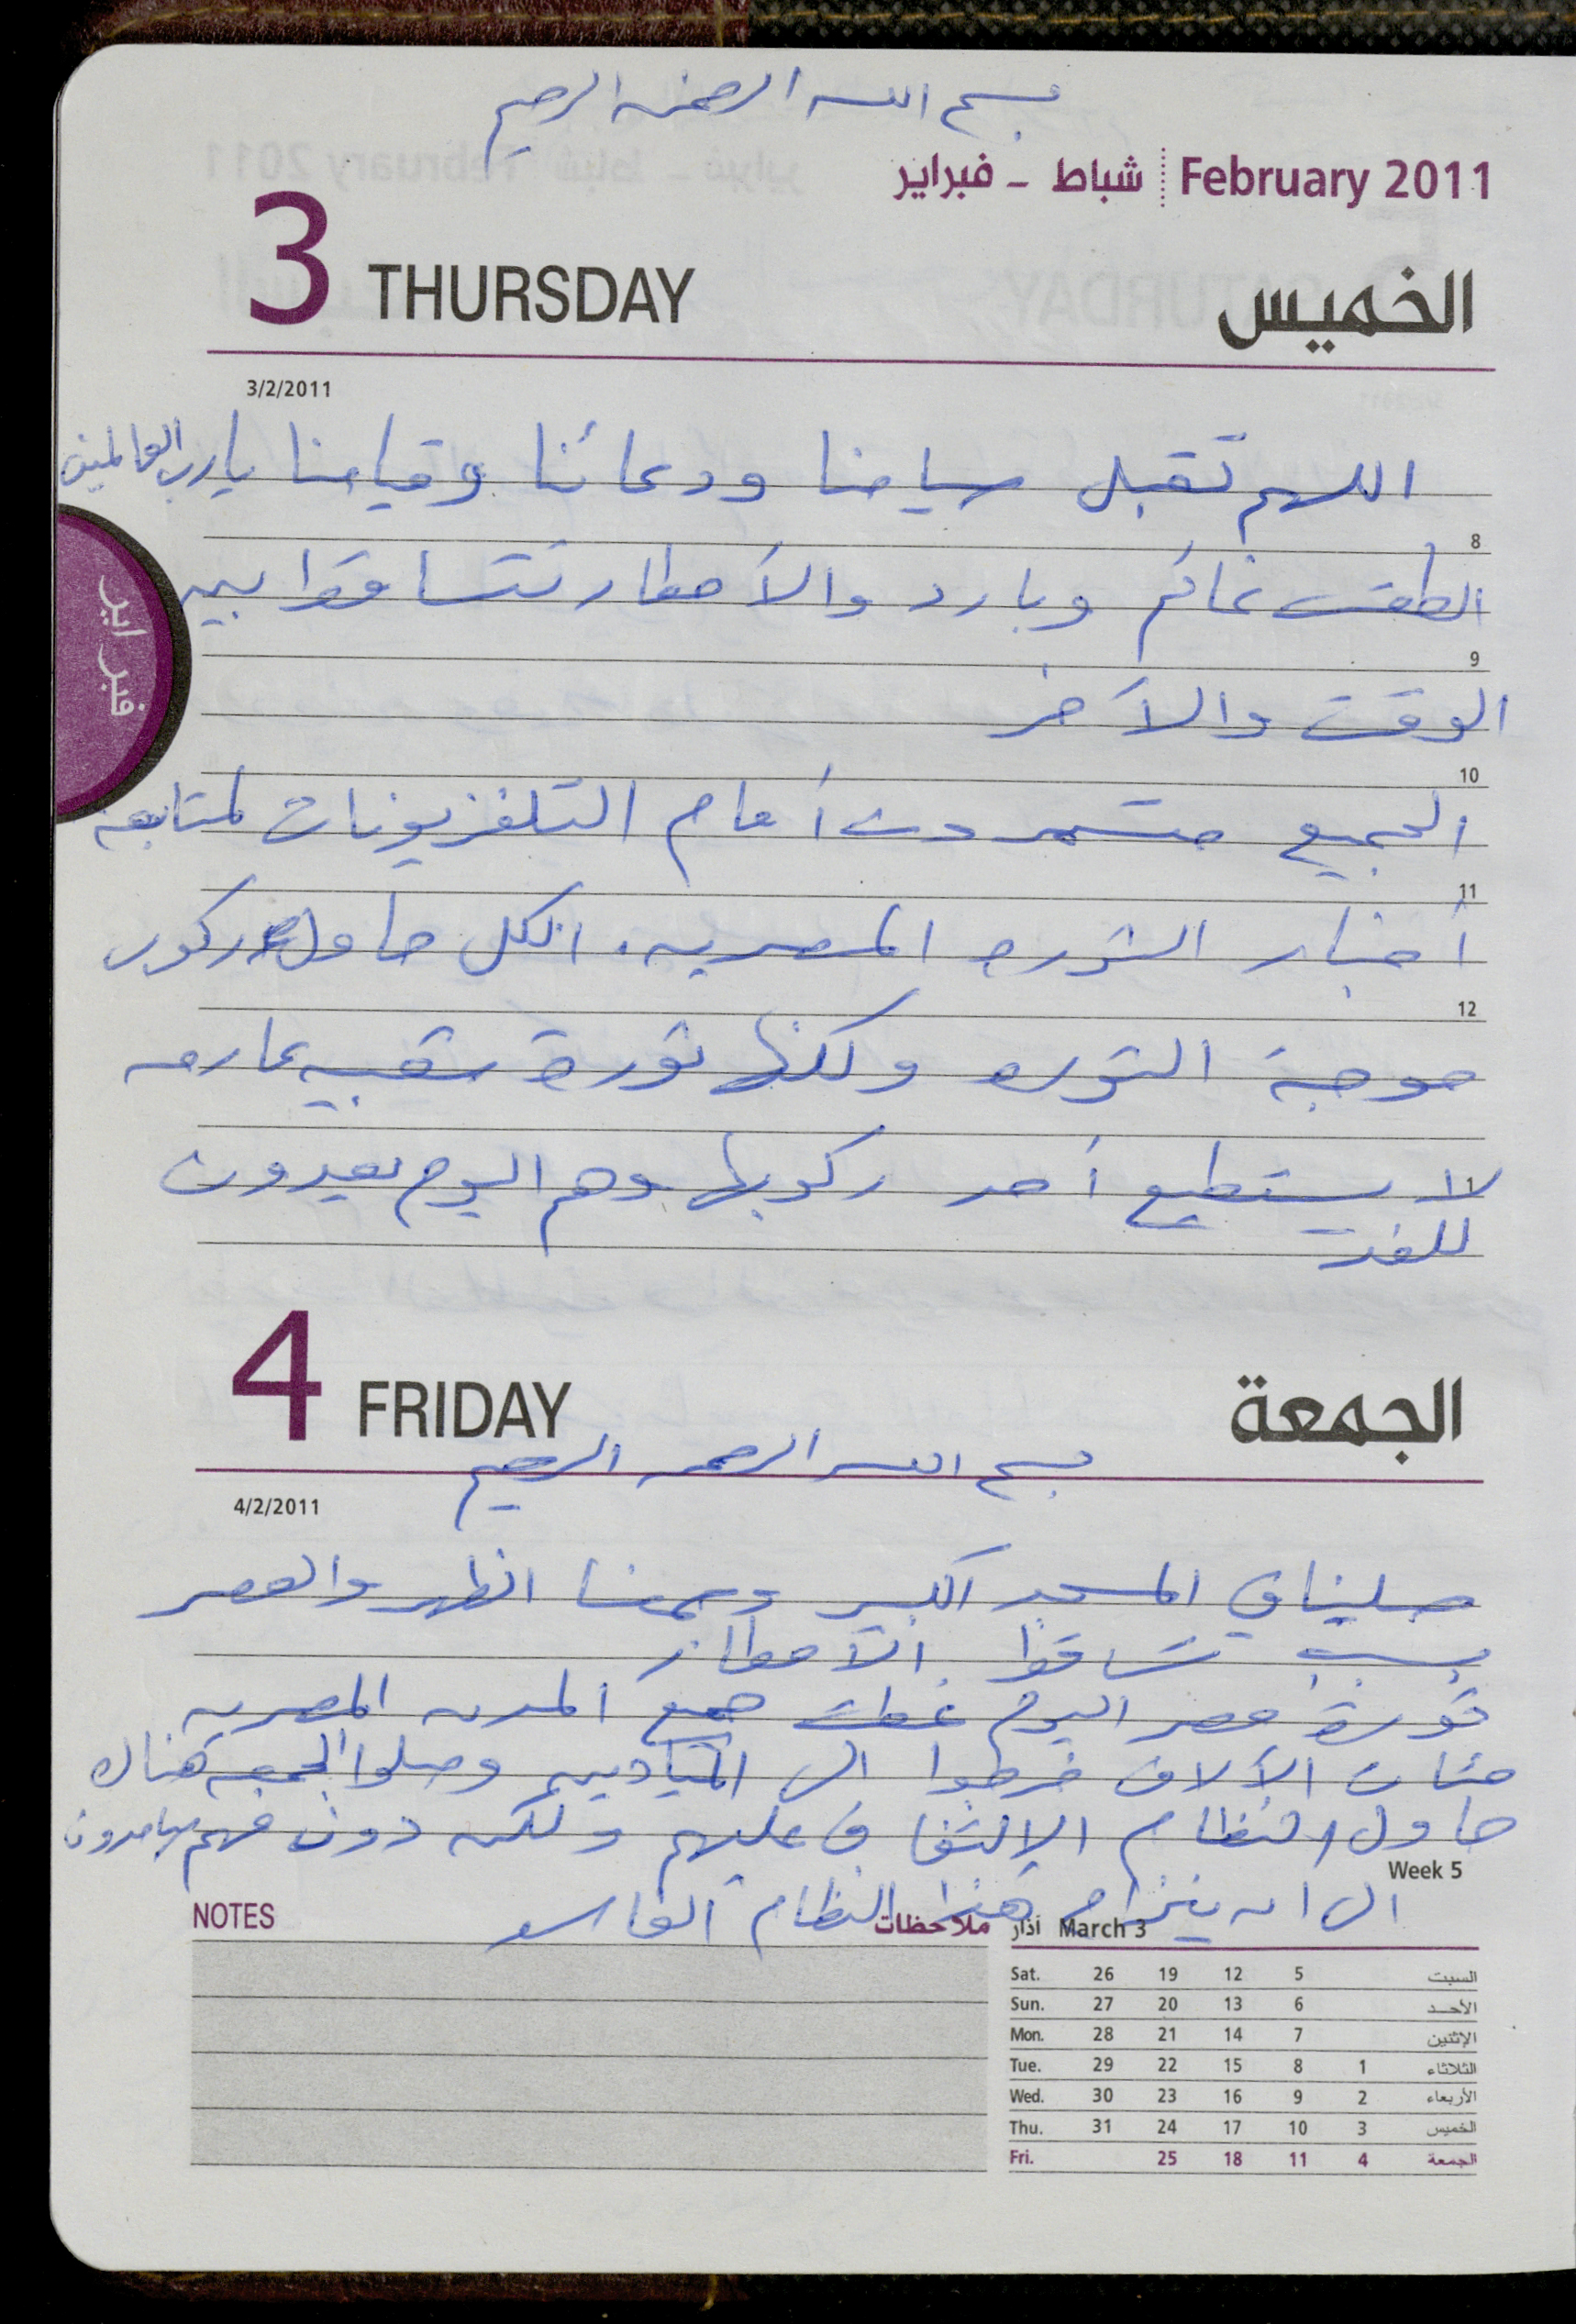 بسم الله الرحمن الرحيم
February 2011 شباط - فبراير
3 THURSDAY الخميس
3/2/2011
اللهم تقبل صيامنا ودعائنا وقيامنا يا رب العالمين
8
الطقس غائم وبارد والأمطار تتساقط بين
9
الوقت والآخر
10
الجميع متسمرون أمام التلفزيونات لمتابعه
11
أخبار الثوره المصريه. الكل حاول ركوب
12
موجة الثوره ولكنها ثورة شعبيه عارمه
1
لا يستطيع أحد ركوبها وهم اليوم يعدون
للغد
فبراير
4 FRIDAY الجمعة
بسم الله الرحمن الرحيم
4/2/2011
صلينا في المسجد الكبير وجمعنا الظهر والعصر
بسبب تساقط الأمطار
ثورة مصر اليوم غطت جميع المدن المصريه
مئات الآلاف خرجوا الى الميادين وصلوا الجمعه هناك
حاول النظام الإلتفاف عليهم ولكن دون فهم صامدون
Week 5
الى ان ينزاح هذا النظام الفاسد
NOTES ملاحظات
March 3 آذار
Sat. 26 19 12 5 السبت
Sun. 27 20 13 6 الأحد
Mon. 28 21 14 7 الإثنين
Tue. 29 22 15 8 1 الثلاثاء
Wed. 30 23 16 9 2 الأربعاء
Thu. 31 24 17 10 3 الخميس
Fri. 25 18 11 4 الجمعة